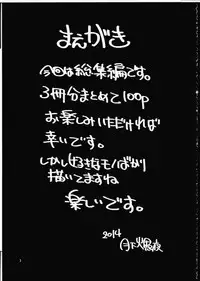 まえがき
今回は総集編です。
3冊分まとめて100p
お楽しみいただければ
幸いです。
しかし好きなモノばかり
描いてますね
楽しいです。
2014
月下火爆夜